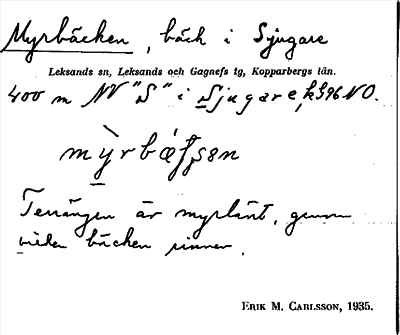 Myrbäcken, bäck i Sjugare
Leksands sn, Leksands och Gagnefs tg, Kopparbergs län.
400 m NV "S" i Sjugare, k 96 NO.
Terrängen är myrlänt, genom
vilken bäcken rinner.
ERIK M. CARLSSON, 1935.